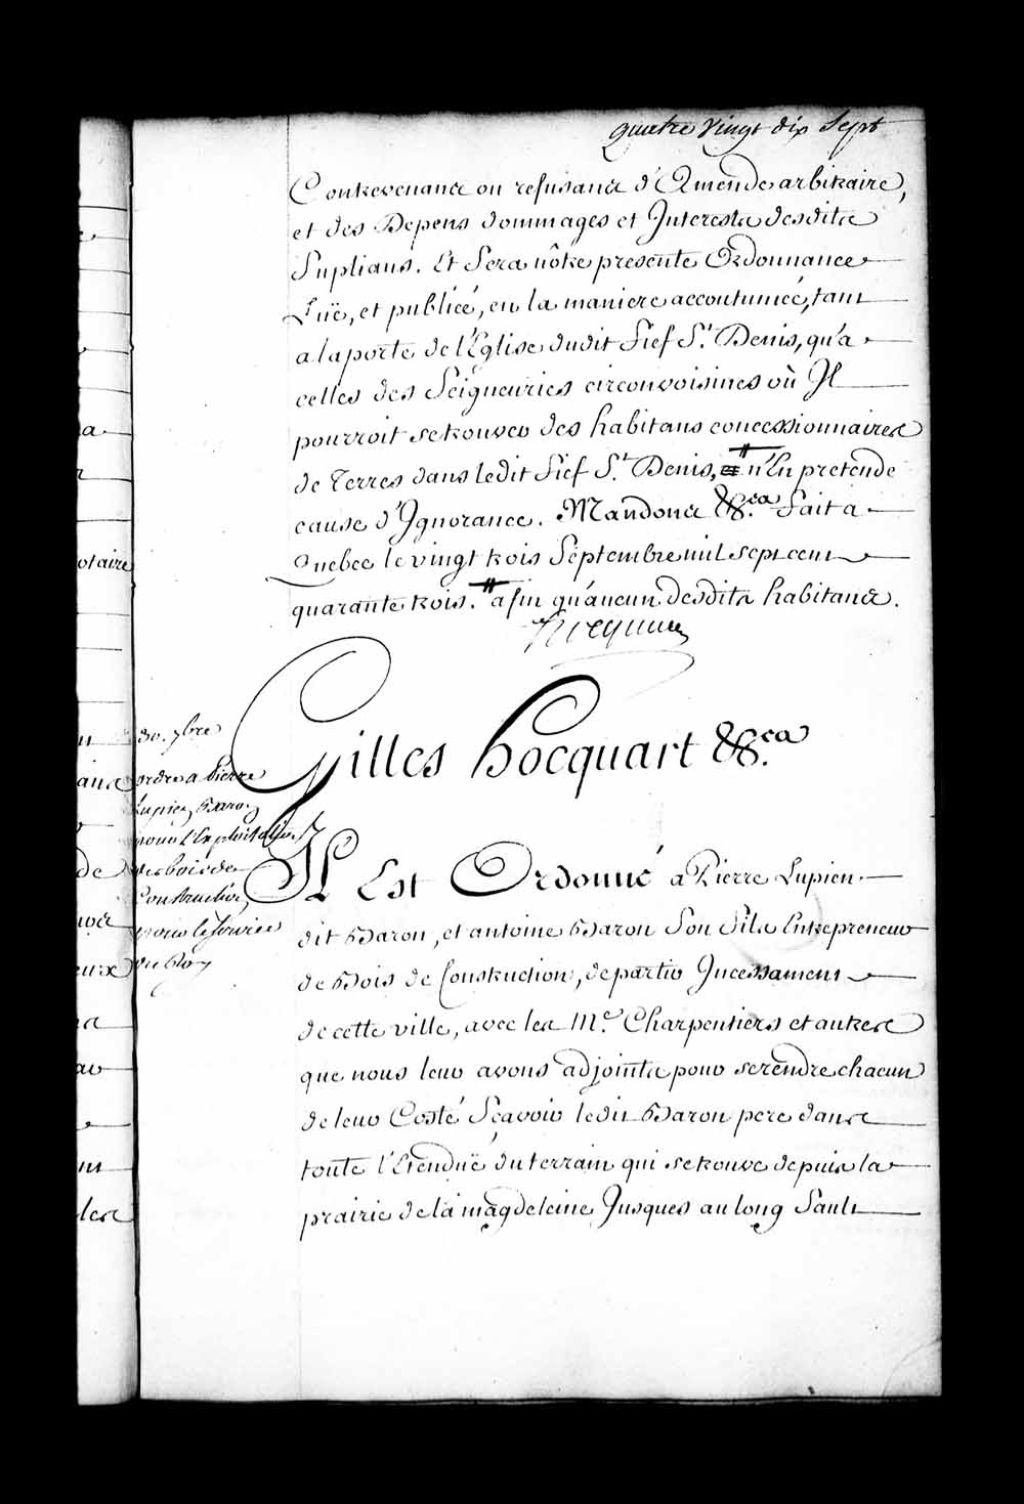 quatre vingt dix Sept
Contrevenans ou refusans d'Amende arbitraire,
et des Depens dommages et Interests desdits
Suplians. Et Sera nôtre presente Ordonnance
Luë, et publiée, en la maniere accoutumée, tant
a la porte de l'Eglise dudit Fief St. Denis, qu'a
celles des Seigneuries circonvoisines où Il
pourroit se trouver des habitans concessionnaires
de Terres dans ledit Fief St. Denis, # n'En pretende
cause d'Ignorance. Mandons &c.a Fait a
Quebec le vingt trois Septembre mil sept cent
quarante trois. # afin qu'aucun desdits habitans.
Hocquart
Gilles hocquart &c.a
30. 7bre
ordre a Pierre
Lupien, Baron
pour l'Exploitation
des bois de
Construction,
pour le Service
du Roy
Il Est Ordonné a Pierre Lupien
dit Baron, et antoine Baron Son Fils Entrepreneur
de Bois de Construction, de partir Incessament
de cette ville, avec les Me. Charpentiers et autres
que nous leur avons adjoints pour se rendre chacun
de leur Costé Scavoir ledit Baron pere dans
toute l'Etenduë du terrain qui se trouve depuis la
prairie de la magdeleine Jusques au long Sault
otaire